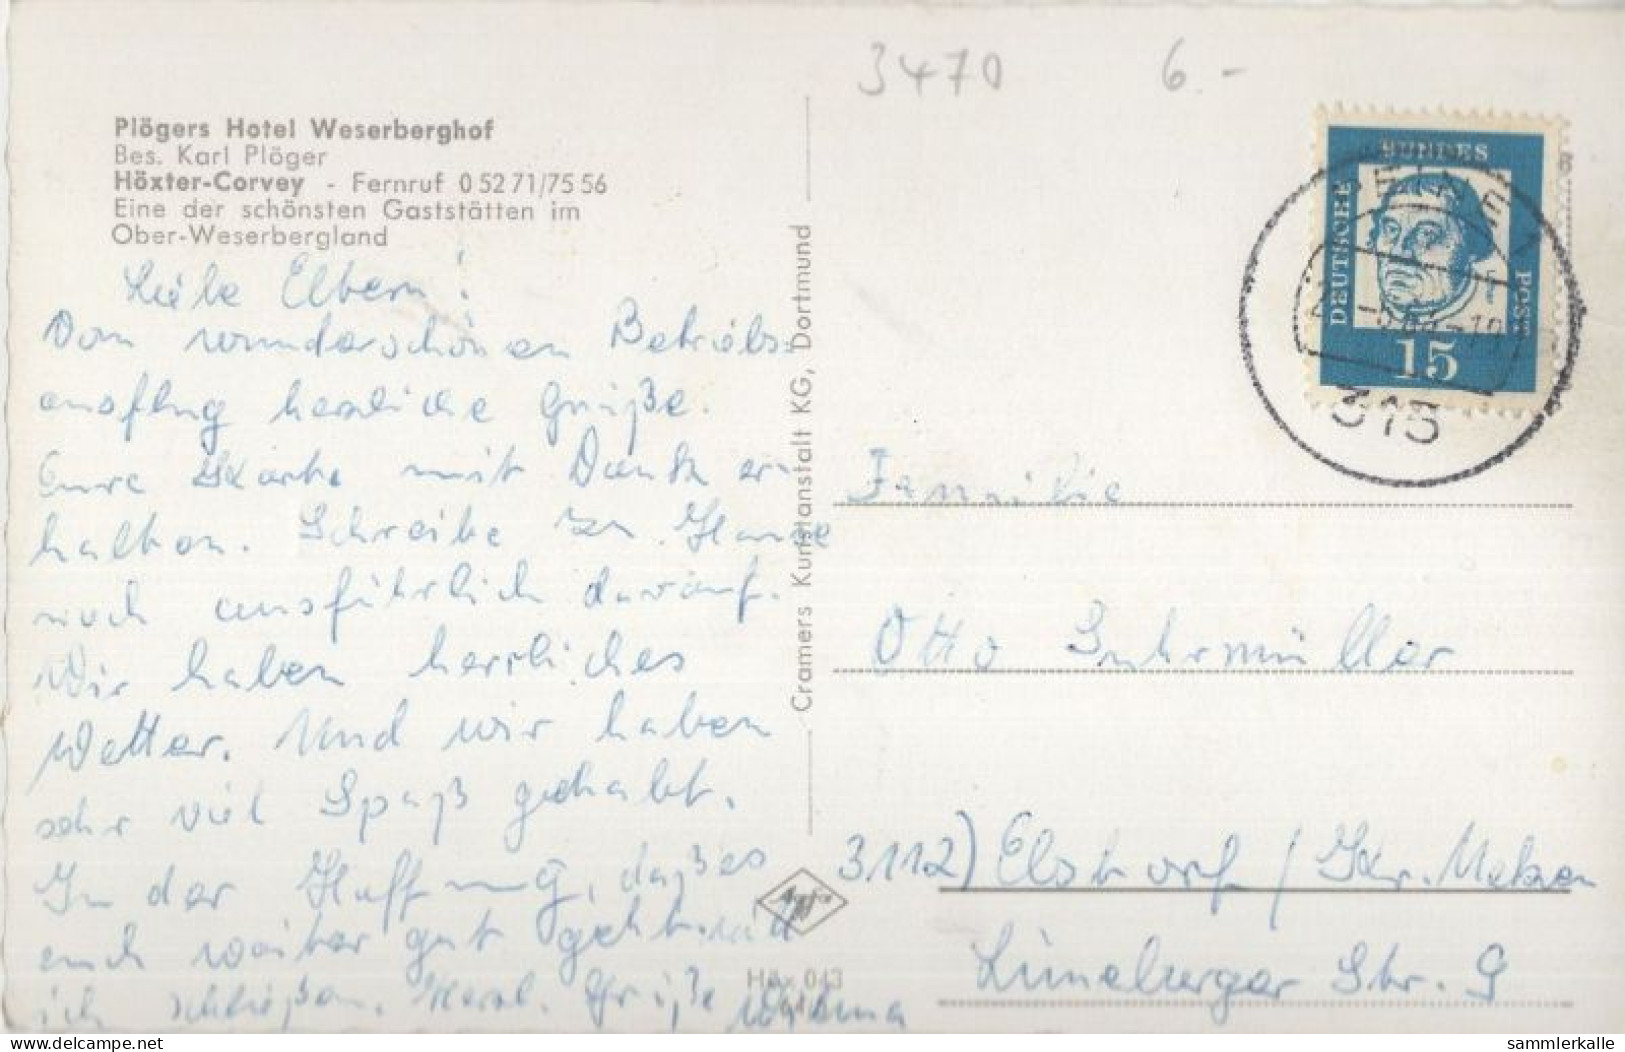 3470 6.-
Plögers Hotel Weserberghof
Bes. Karl Plöger
Höxter-Corvey - Fernruf 0 52 71/75 56
Eine der schönsten Gaststätten im
Ober-Weserbergland
Liebe Eltern!
Vom wunderschönen Betriebs-
ausflug herzliche Grüße.
Eure Karte mit Dank er-
halten. Schreibe zu Hause
noch ausführlich darauf.
Wir haben herrliches
Wetter. Und wir haben
sehr viel Spaß gehabt.
In der Hoffnung, daß es
euch weiter gut geht will
ich schließen. Herzl. Grüße
Cramers Kunstanstalt KG, Dortmund
Agfa
Höx 043
DEUTSCHE BUNDESPOST
15
PEINE
315
Familie
Otto Suhrmüller
3112) Ebstorf / Kr. Uelzen
Lüneburger Str. 9
delcampe.net
sammlerkalle